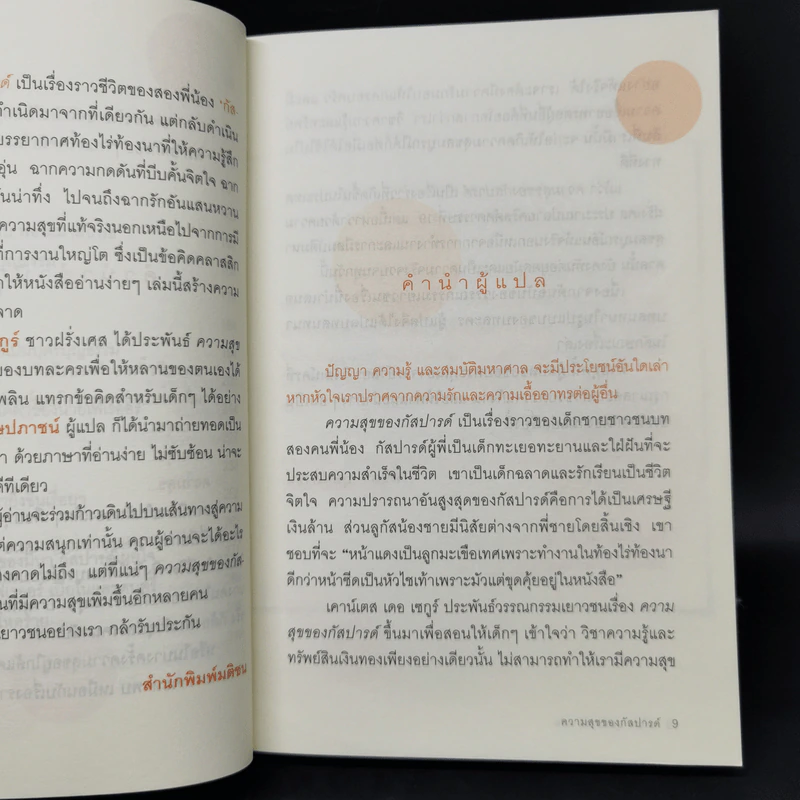 ด์ เป็นเรื่องราวชีวิตของสองพี่น้อง ‘กัส-
กำเนิดมาจากที่เดียวกัน แต่กลับดำเนิน
บรรยากาศท้องไร่ท้องนาที่ให้ความรู้สึก
อุ่น ฉากความกดดันที่บีบคั้นจิตใจ ฉาก
ันน่าทึ่ง ไปจนถึงฉากรักอันแสนหวาน
ความสุขที่แท้จริงนอกเหนือไปจากการมี
ที่การงานใหญ่โต ซึ่งเป็นข้อคิดคลาสสิก
ำให้หนังสืออ่านง่ายๆ เล่มนี้สร้างความ
ลาด
กูร์ ชาวฝรั่งเศส ได้ประพันธ์ ความสุข
ของบทละครเพื่อให้หลานของตนเองได้
พลิน แทรกข้อคิดสำหรับเด็กๆ ได้อย่าง
ษปภาชน์ ผู้แปล ก็ได้นำมาถ่ายทอดเป็น
า ด้วยภาษาที่อ่านง่าย ไม่ซับซ้อน น่าจะ
ดีทีเดียว
ผู้อ่านจะร่วมก้าวเดินไปบนเส้นทางสู่ความ
ต่ความสนุกเท่านั้น คุณผู้อ่านจะได้อะไร
งคาดไม่ถึง แต่ที่แน่ๆ ความสุขของกัส-
นที่มีความสุขเพิ่มขึ้นอีกหลายคน
ยาวชนอย่างเรา กล้ารับประกัน
สำนักพิมพ์มติชน
คำนำผู้แปล
ปัญญา ความรู้ และสมบัติมหาศาล จะมีประโยชน์อันใดเล่า
หากหัวใจเราปราศจากความรักและความเอื้ออาทรต่อผู้อื่น
ความสุขของกัสปารด์ เป็นเรื่องราวของเด็กชายชาวชนบท
สองคนพี่น้อง กัสปารด์ผู้พี่เป็นเด็กทะเยอทะยานและใฝ่ฝันที่จะ
ประสบความสำเร็จในชีวิต เขาเป็นเด็กฉลาดและรักเรียนเป็นชีวิต
จิตใจ ความปรารถนาอันสูงสุดของกัสปารด์คือการได้เป็นเศรษฐี
เงินล้าน ส่วนลูกัสน้องชายมีนิสัยต่างจากพี่ชายโดยสิ้นเชิง เขา
ชอบที่จะ “หน้าแดงเป็นลูกมะเขือเทศเพราะทำงานในท้องไร่ท้องนา
ดีกว่าหน้าซีดเป็นหัวไชเท้าเพราะมัวแต่ขุดคุ้ยอยู่ในหนังสือ”
เคาน์เตส เดอ เซกูร์ ประพันธ์วรรณกรรมเยาวชนเรื่อง ความ
สุขของกัสปารด์ ขึ้นมาเพื่อสอนให้เด็กๆ เข้าใจว่า วิชาความรู้และ
ทรัพย์สินเงินทองเพียงอย่างเดียวนั้น ไม่สามารถทำให้เรามีความสุข
ความสุขของกัสปารด์ 9